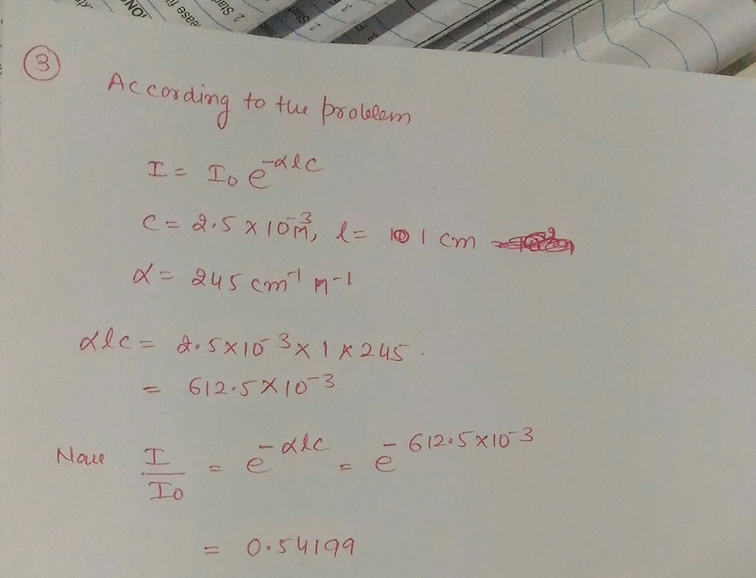 ③
According to the problem
I = I₀ e^{-αlc}
C = 2.5 × 10^{-3} M, l = 1 cm
α = 245 cm^{-1} M^{-1}
αlc = 2.5×10^{-3} × 1 × 245.
= 612.5×10^{-3}
Now I/I₀ = e^{-αlc} = e^{-612.5×10^{-3}}
= 0.54199